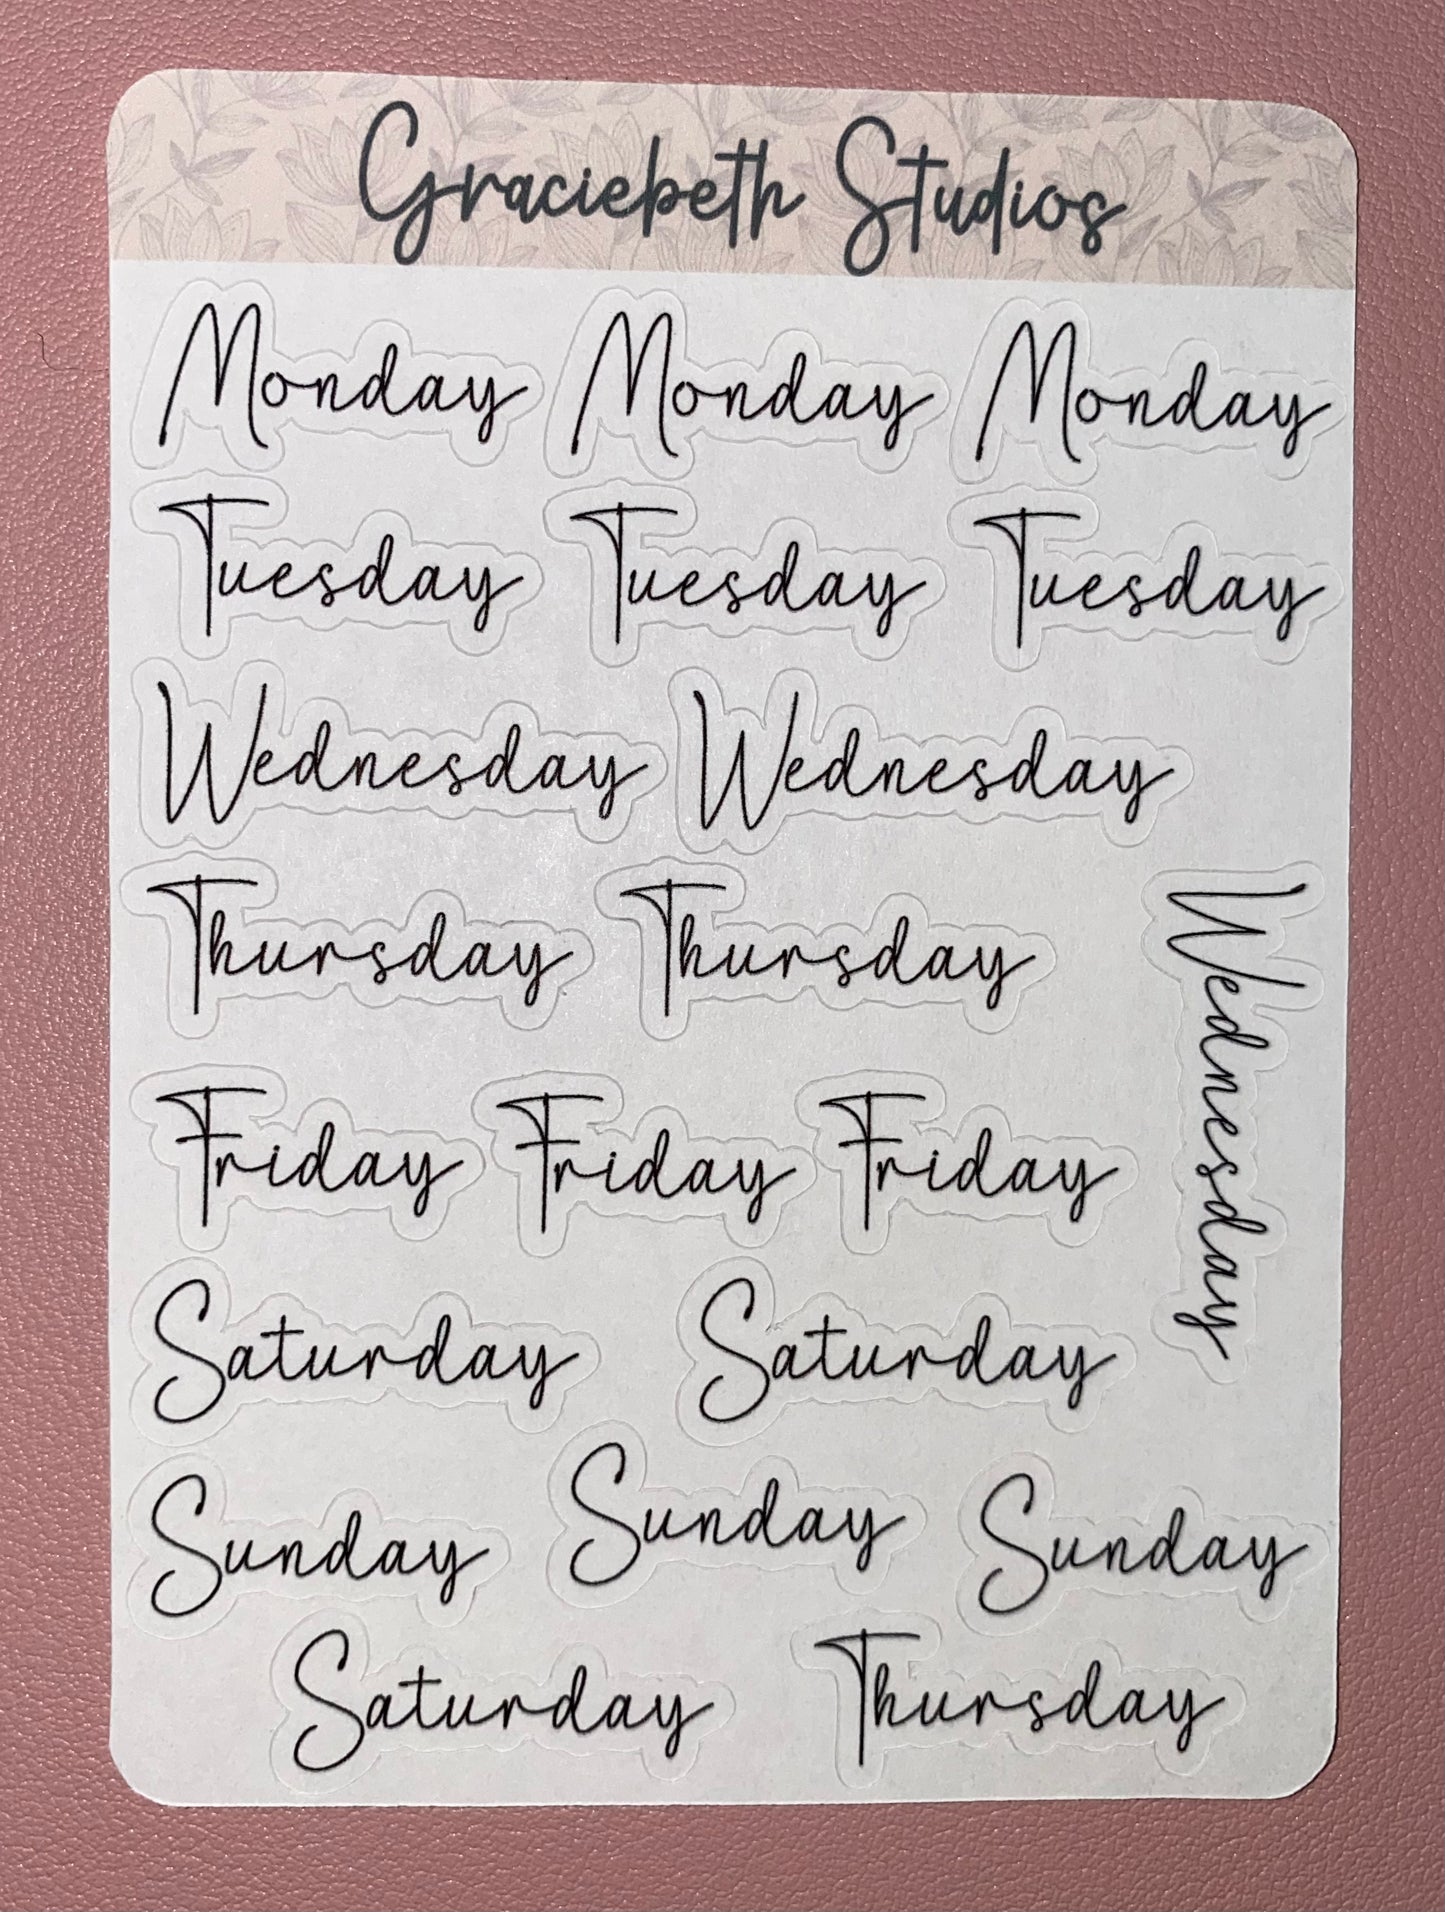 Graciebeth Studios
Monday Monday Monday
Tuesday Tuesday Tuesday
Wednesday Wednesday
Thursday Thursday
Wednesday
Friday Friday Friday
Saturday Saturday
Sunday Sunday Sunday
Saturday Thursday